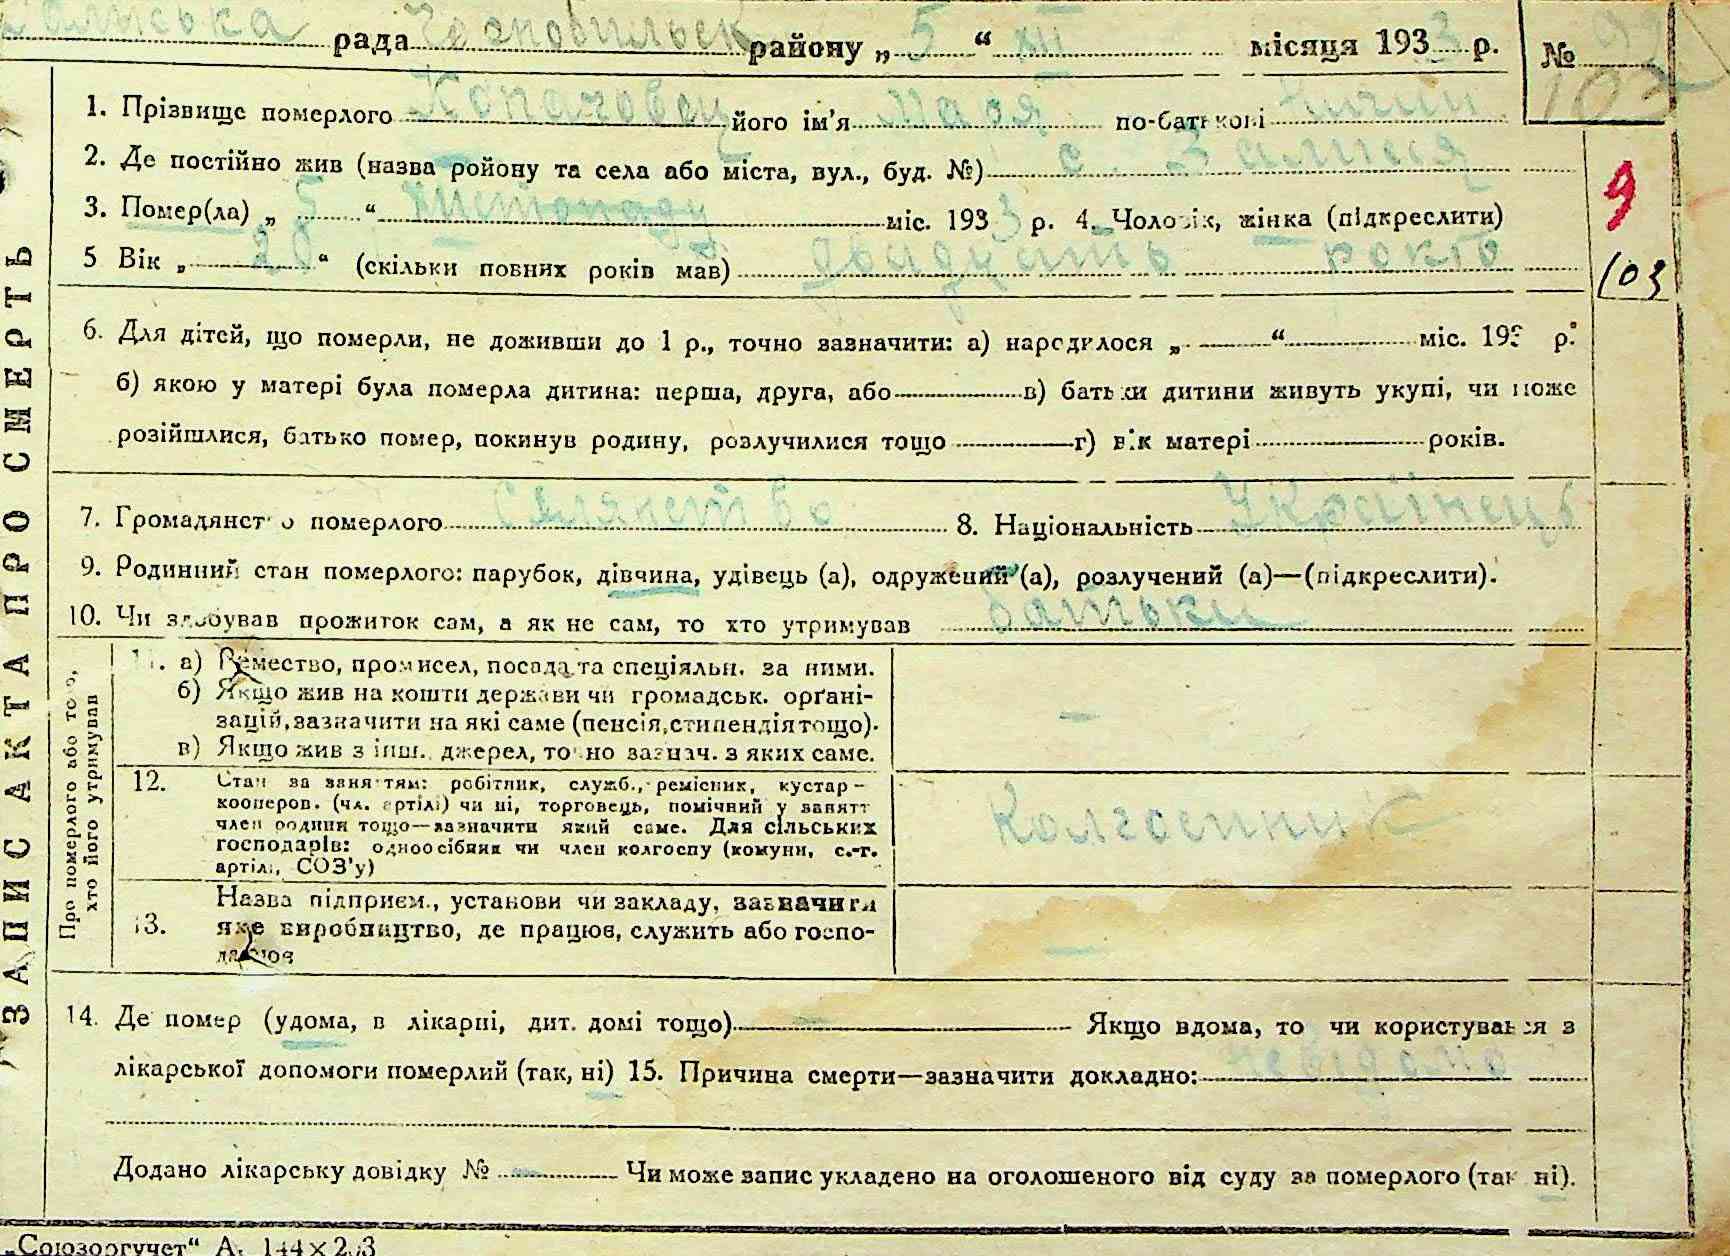 рада Чорнобильськ району „ 5 “ XII місяця 1933 р. №
102
1. Прізвище померлого Копачовец його ім'я Марія по-батькові
2. Де постійно жив (назва ройону та села або міста, вул., буд. №) с. Залісся
9
3. Помер(ла) „ 5 “ листопаду міс. 1933 р. 4. Чоловік, жінка (підкреслити)
5 Вік „ 20 “ (скільки повних років мав) двадцять років
103
6. Для дітей, що померли, не доживши до 1 р., точно зазначити: а) народилося „ “ міс. 193 р.
б) якою у матері була померла дитина: перша, друга, або в) батьки дитини живуть укупі, чи може
розійшлися, батько помер, покинув родину, розлучилися тощо г) вік матері років.
7. Громадянство померлого селянство 8. Національність Українець
9. Родинний стан померлого: парубок, дівчина, удівець (а), одружений (а), розлучений (а)—(підкреслити).
10. Чи здобував прожиток сам, а як не сам, то хто утримував батьки
ЗАПИС АКТА ПРО СМЕРТЬ
Про померлого або того,
хто його утримував
11. а) Ремество, промисел, посада та спеціяльн. за ними.
б) Якщо жив на кошти держави чи громадськ. орґані-
зацій, зазначити на які саме (пенсія, стипендія тощо).
в) Якщо жив з інш. джерел, точно зазнач. з яких саме.
12. Стан за заняттям: робітник, служб., ремісник, кустар-
кооперов. (чл. артілі) чи ні, торговець, помічний у занятт
член родини тощо—зазначити який саме. Для сільських
господарів: одноосібник чи член колгоспу (комуни, с.-г.
артілі, СОЗ'у)
Колгоспник
13. Назва підприєм., установи чи закладу, зазначити
яке виробництво, де працює, служить або госпо-
дарює
14. Де помер (удома, в лікарні, дит. домі тощо) Якщо вдома, то чи користувався з
лікарської допомоги померлий (так, ні) 15. Причина смерти—зазначити докладно: невідомо
Додано лікарську довідку № Чи може запис укладено на оголошеного від суду за померлого (так ні).
„Союзоргучет“ А. 144×203